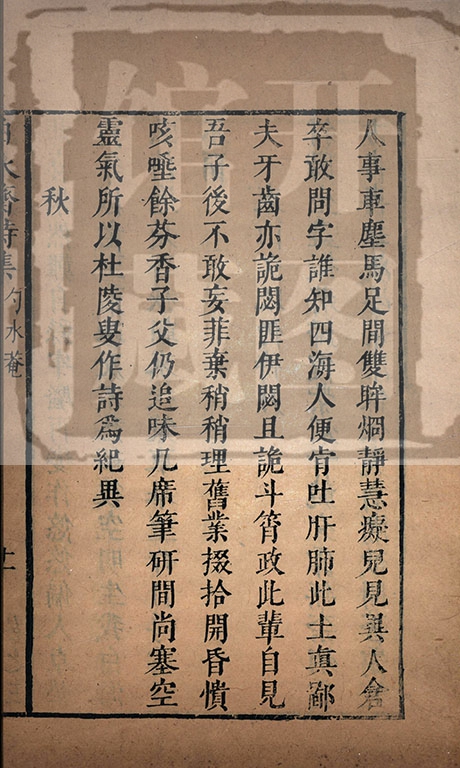 人事車塵馬足間雙眸烱靜慧癡兒見異人倉
卒敢問字誰知四海人便肯吐肝肺此士眞鄙
夫牙齒亦詭閟匪伊閟且詭斗筲政此輩自見
吾子後不敢妄菲棄稍稍理舊業掇拾開昏憒
咳唾餘芬香子父仍追味几席筆硏間尚塞空
靈氣所以杜陵叟作詩爲紀異
秋
白水齋詩集 勺水菴
十一